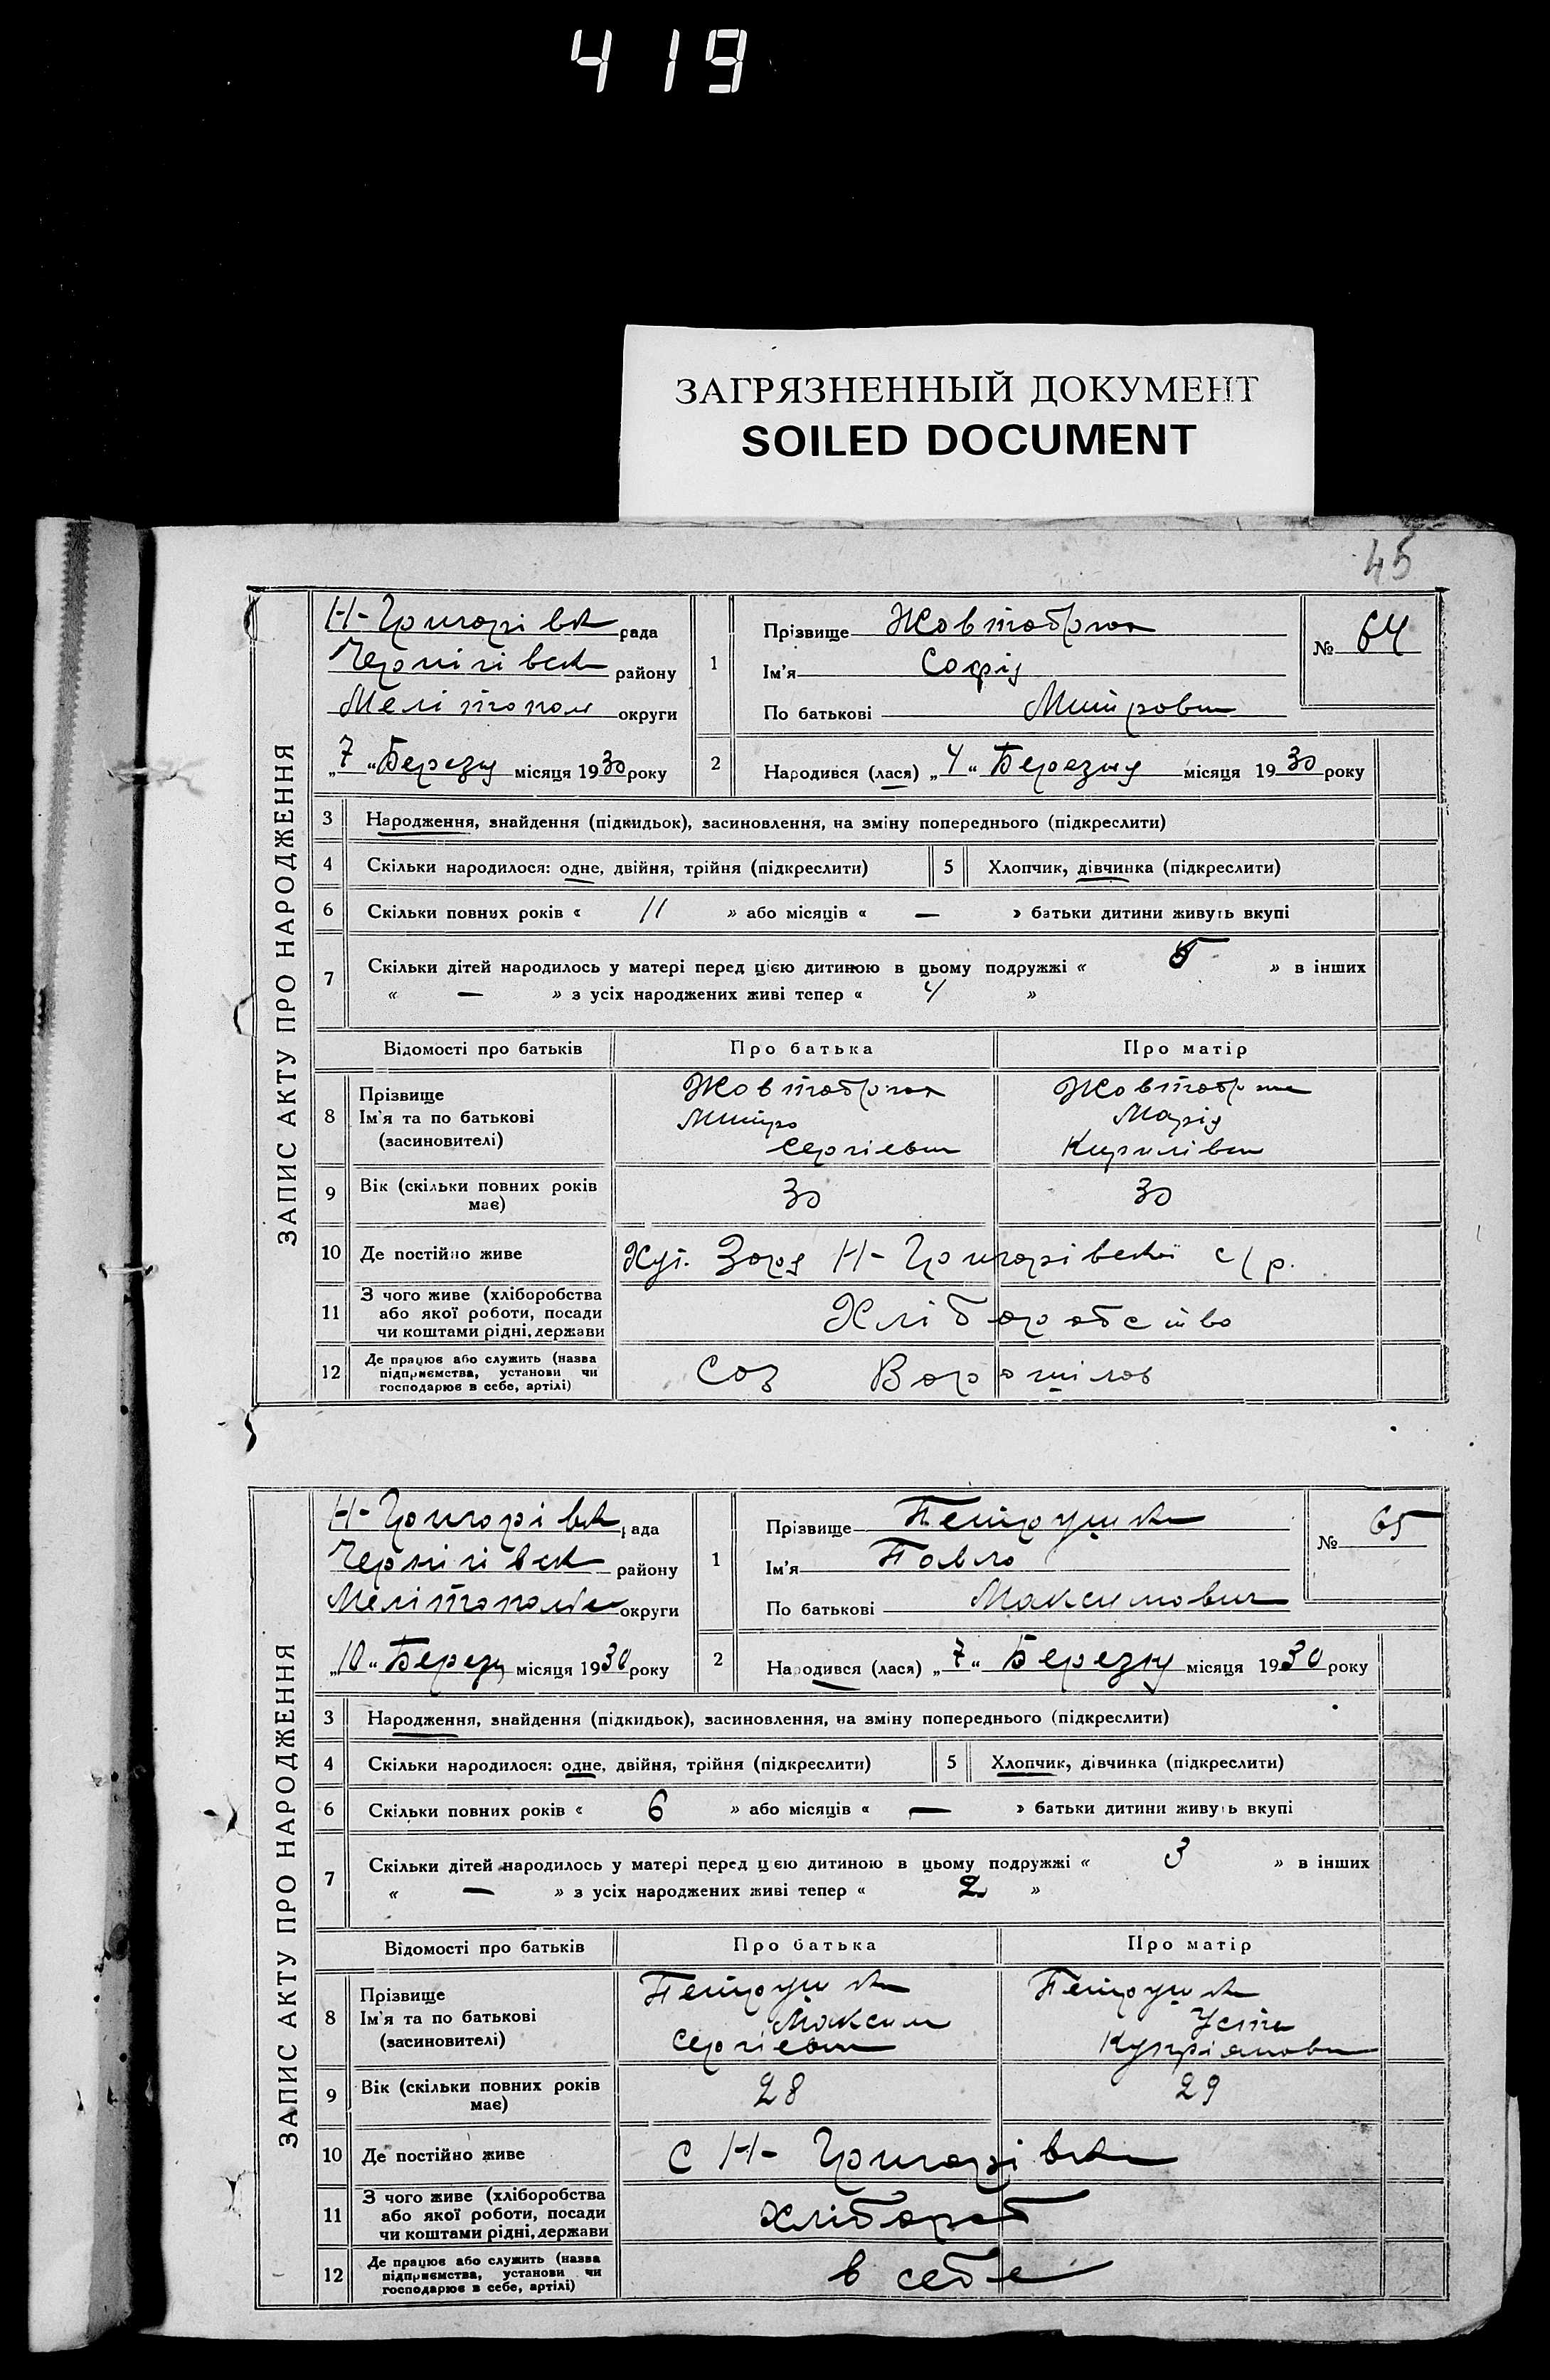 419
ЗАГРЯЗНЕННЫЙ ДОКУМЕНТ
SOILED DOCUMENT
45
ЗАПИС АКТУ ПРО НАРОДЖЕННЯ
Н-Григорівск рада
Чернігівск району
Мелітопол округи
„7“ Березня місяця 1930 року
1 Прізвище Жовтобрюх
Ім'я Софія
По батькові Митровн
№ 64
2 Народився (лася) „4“ Березня місяця 1930 року
3 Народження, знайдення (підкидьок), засиновлення, на зміну попереднього (підкреслити)
4 Скільки народилося: одне, двійня, трійня (підкреслити) 5 Хлопчик, дівчинка (підкреслити)
6 Скільки повних років « 11 » або місяців « — » батьки дитини живуть вкупі
7 Скільки дітей народилось у матері перед цією дитиною в цьому подружжі « 5 » в інших
« — » з усіх народжених живі тепер « 4 »
Відомості про батьків Про батька Про матір
8 Прізвище
Ім'я та по батькові
(засиновителі)
Жовтобрюх
Митро
Сергіевич
Марія
Кирилівн
9 Вік (скільки повних років
має)
30 30
10 Де постійно живе Хут. Зоря Н-Григорівської с/р.
11 З чого живе (хліборобства
або якої роботи, посади
чи коштами рідні, держави
Хліборобство
12 Де працює або служить (назва
підприємства, установи чи
господарює в себе, артілі)
Соз Ворошилов
ЗАПИС АКТУ ПРО НАРОДЖЕННЯ
Н-Григорівк рада
Чернігівск району
Мелітопольск округи
„10“ Березн місяця 1930 року
1 Прізвище Петрушк
Ім'я Павло
По батькові Максимович
№ 65
2 Народився (лася) „7“ Березня місяця 1930 року
3 Народження, знайдення (підкидьок), засиновлення, на зміну попереднього (підкреслити)
4 Скільки народилося: одне, двійня, трійня (підкреслити) 5 Хлопчик, дівчинка (підкреслити)
6 Скільки повних років « 6 » або місяців « — » батьки дитини живуть вкупі
7 Скільки дітей народилось у матері перед цією дитиною в цьому подружжі « 3 » в інших
« — » з усіх народжених живі тепер « 2 »
Відомості про батьків Про батька Про матір
8 Прізвище
Ім'я та по батькові
(засиновителі)
Петрушк
Максим
Сергіевич
Петрушк
Устн
Купріяновн
9 Вік (скільки повних років
має)
28 29
10 Де постійно живе с Н-Григорівк
11 З чого живе (хліборобства
або якої роботи, посади
чи коштами рідні, держави
хлібороб
12 Де працює або служить (назва
підприємства, установи чи
господарює в себе, артілі)
в себе